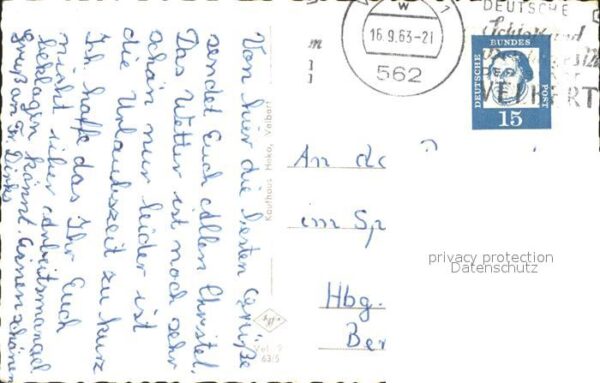 Von hier die besten Grüße
sendet Euch Allen Christel.
Das Wetter ist noch sehr
schön nur leider ist
die Urlaubszeit zu kurz
Ich hoffe das Ihr Euch
nicht über Arbeitsmangel
beklagen könnt. Einen schönen
Gruß an Fr. Dirks
Kaufhaus Hoka, Velbert
W
16.9.63-21
562
DEUTSCHE
VELBERT
DEUTSCHE BUNDES POST
15
An de
im Sp
Hbg.
Ber
privacy protection
Datenschutz